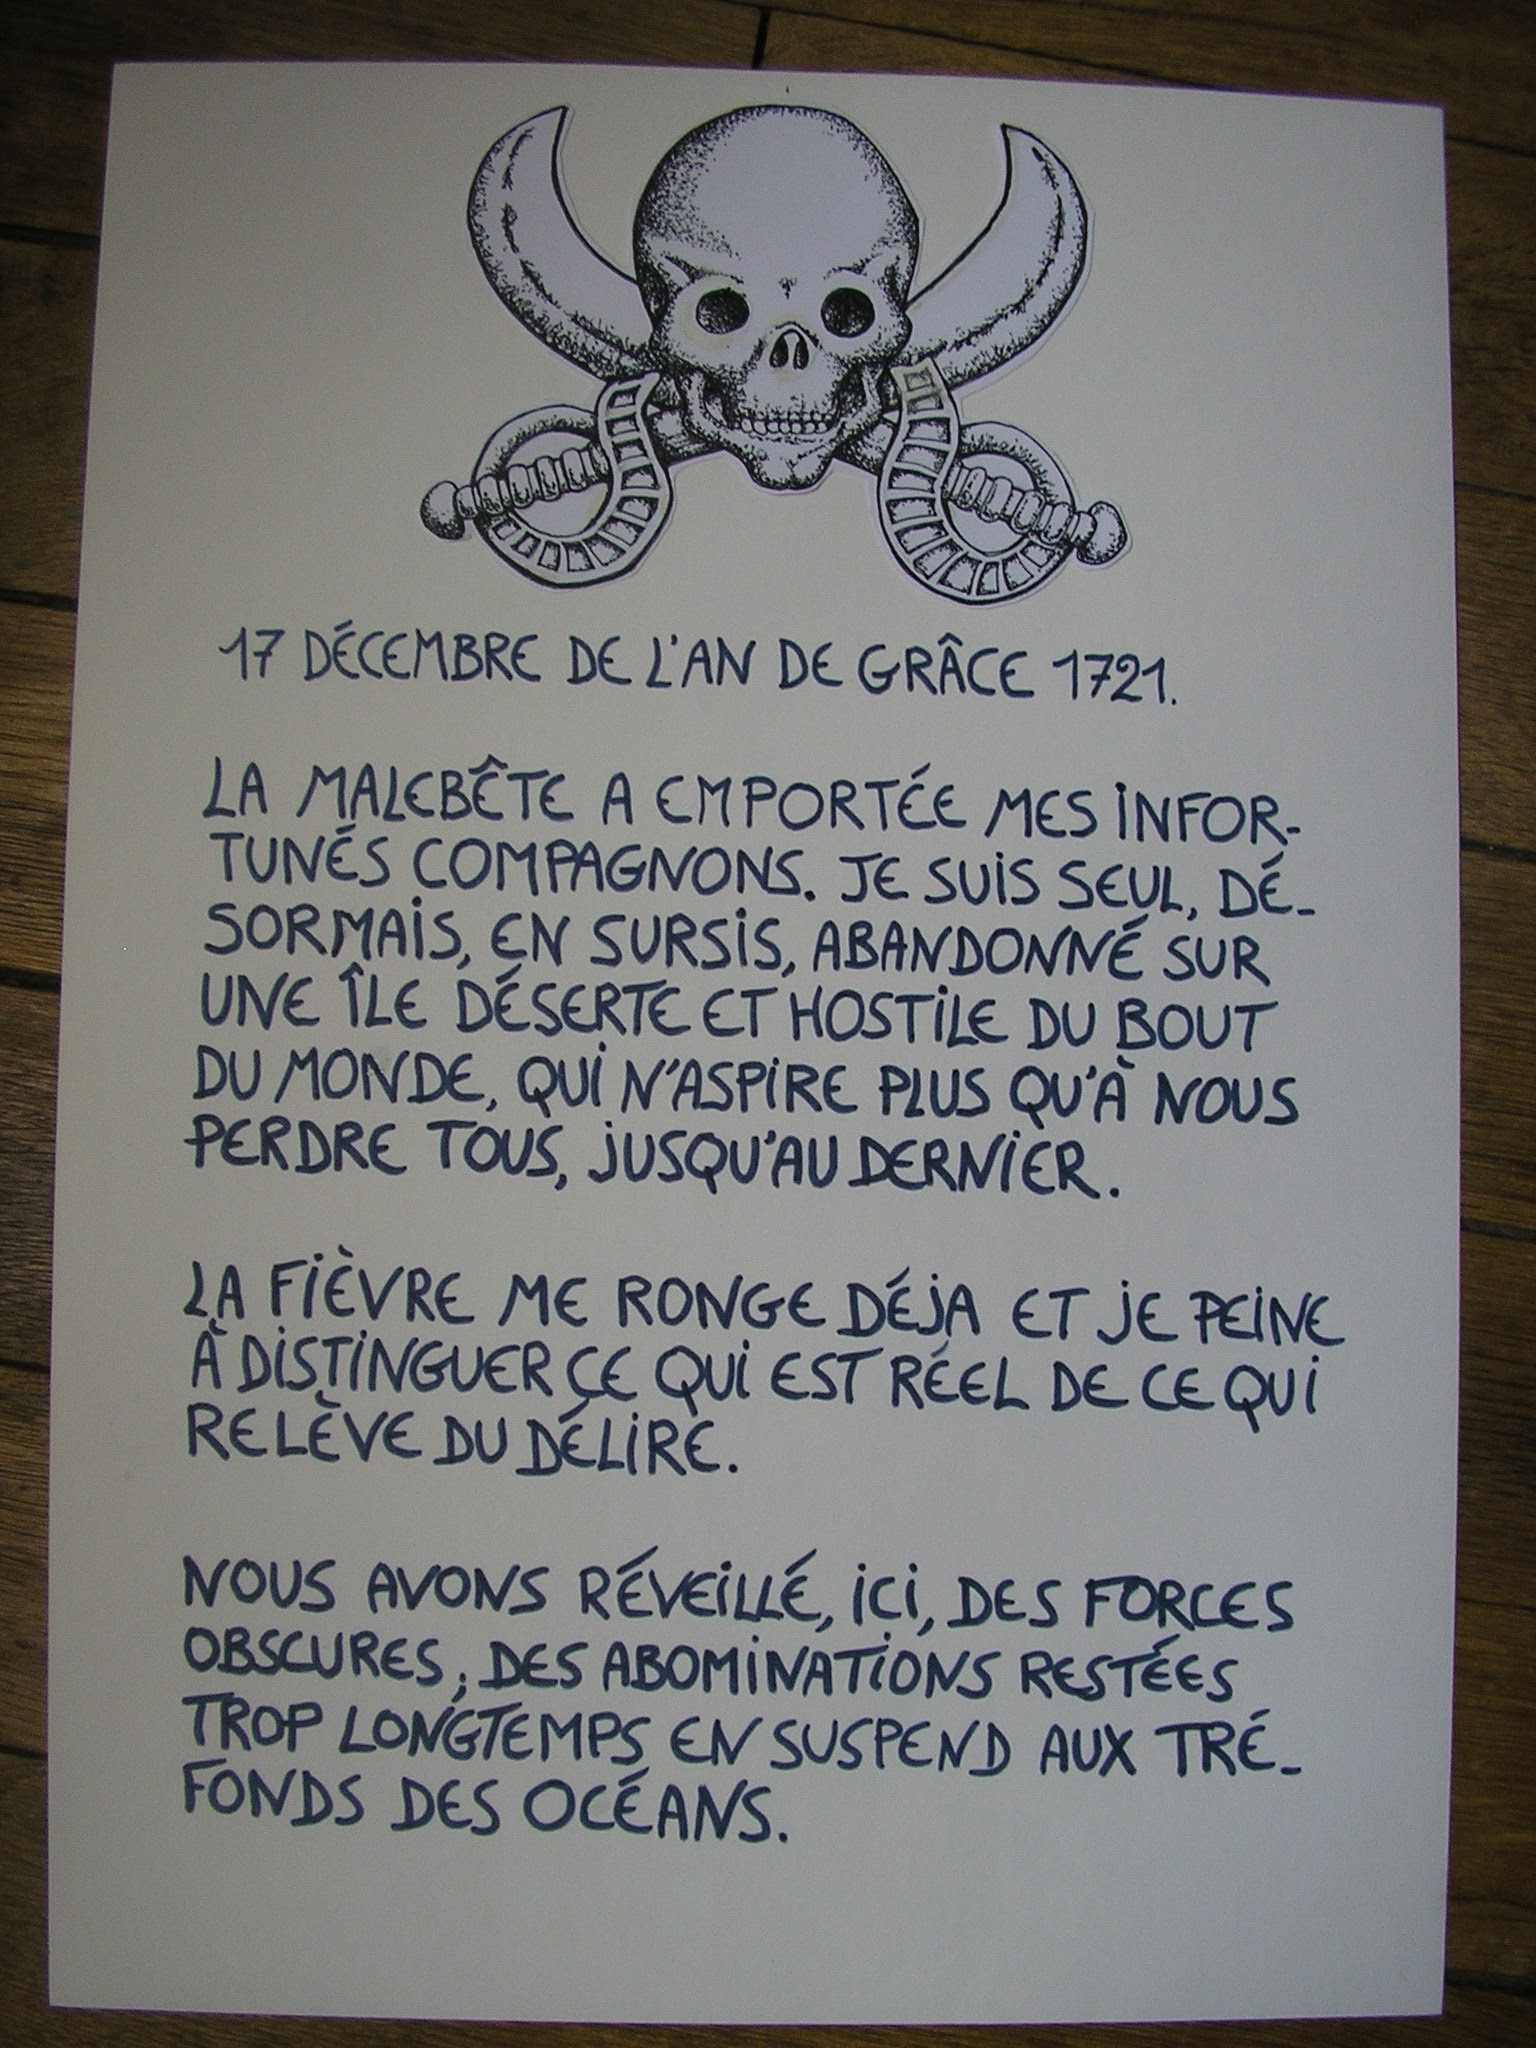 17 DÉCEMBRE DE L'AN DE GRÂCE 1721.
LA MALEBÊTE A EMPORTÉE MES INFOR-
TUNÉS COMPAGNONS. JE SUIS SEUL, DÉ-
SORMAIS, EN SURSIS, ABANDONNÉ SUR
UNE ÎLE DÉSERTE ET HOSTILE DU BOUT
DU MONDE, QUI N'ASPIRE PLUS QU'À NOUS
PERDRE TOUS, JUSQU'AU DERNIER.
LA FIÈVRE ME RONGE DÉJA ET JE PEINE
À DISTINGUER CE QUI EST RÉEL DE CE QUI
RELÈVE DU DÉLIRE.
NOUS AVONS RÉVEILLÉ, ICI, DES FORCES
OBSCURES ; DES ABOMINATIONS RESTÉES
TROP LONGTEMPS EN SUSPEND AUX TRÉ-
FONDS DES OCÉANS.